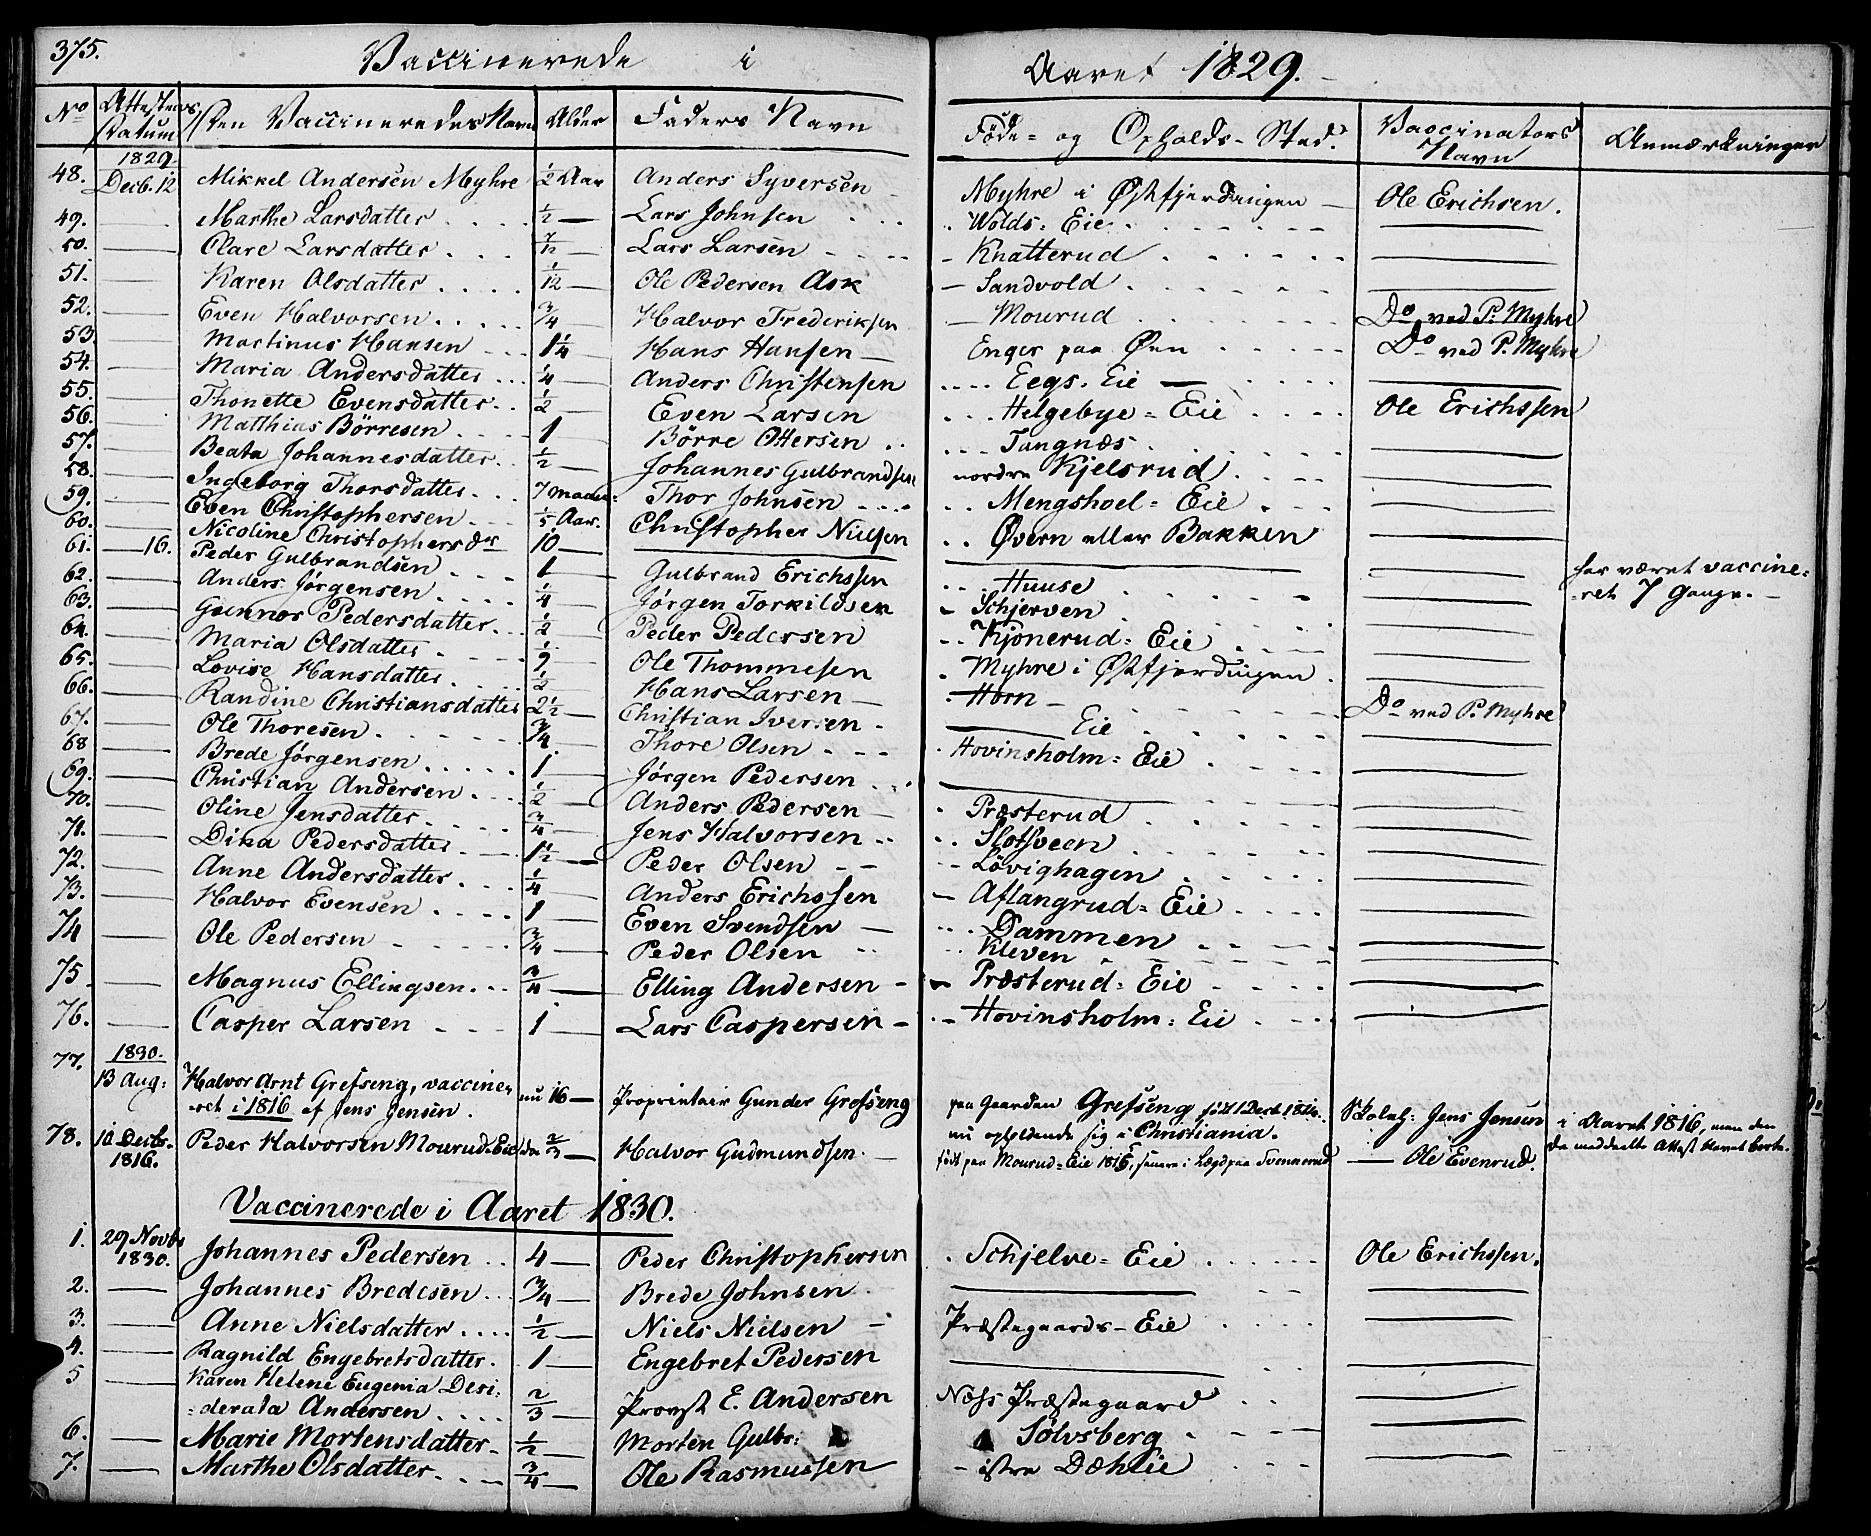 375. Vaccinerede i Aaret 1829.
No Attestens Datum Den Vaccineredes Navn Alder Faders Navn Føde- og Opholds-Sted. Vaccinators Navn Anmærkninger
1829
48. Decb. 12 Mikkel Andersen Myhre 1/2 Aar Anders Syversen Myhre i Østfjerdingen Ole Erichsen.
49. Marthe Larsdatter 1/2 Lars Johnsen Wolds-Eie
50. Clare Larsdatter Lars Larsen Knatterud
51. Karen Olsdatter 1/12 Ole Pedersen Ask Sandvold
52. Even Halvorsen 3/4 Halvor Frederiksen Mourud Do ved P. Myhre
53. Martinus Hansen 1 1/4 Hans Hansen Enger paa Øen Do ved P. Myhre
54. Maria Andersdatter 1/4 Anders Christensen Eegs-Eie
55. Thonette Evensdatter 1/2 Even Larsen Helgebye-Eie Ole Erichssen
56. Matthias Börresen 1 Börre Ottersen Tangnæs
57. Beata Johannesdatter 1/2 Johannes Gulbrandsen nordre Kjelsrud
58. Ingeborg Thorsdatter 7 maan: Thor Johnsen Mengshoel-Eie
59. Even Christophersen 1/5 Aar. Christopher Nielsen Øvern eller Bakken
60. Nicoline Christophersdr 10
61. 16. Peder Gulbrandsen 1 Gulbrand Erichssen Huuse har været vaccine-
ret 7 Gange.
62. Anders Jørgensen 1/4 Jørgen Torkildsen Schjerven
63. Gunnor Pedersdatter 1/2 Peder Pedersen Kjonerud-Eie
64. Maria Olsdatter Ole Thommesen Myhre i Østfjerdingen
65. Lovise Hansdatter 1/2 Hans Larsen Horn
66. Randine Christiansdatter 2 1/2 Christian Iversen Eie Do ved P. Myhre
67. Ole Thoresen 3/4 Thore Olsen Hovinsholm-Eie
68 Brede Jørgensen 1 Jørgen Pedersen
69. Christian Andersen 1/2 Anders Pedersen Præsterud
70. Oline Jensdatter 3/4 Jens Halvorsen Slotsveen
71. Dina Pedersdatter 1 1/2 Peder Olsen Lövighagen
72. Anne Andersdatter 1/4 Anders Erichssen Aflangrud-Eie
73. Halvor Evensen 1 Even Svendsen Dammen
74 Ole Pedersen 3/4 Peder Olsen Kleven
75. Magnus Ellingsen 3/4 Elling Andersen Præsterud-Eie
76. Casper Larsen 1 Lars Caspersen Hovinsholm-Eie
1830.
77. 13 Aug: Halvor Arnt Grefseng, vaccine- nu 16 Proprietair Gunder Grefseng paa Gaarden Grefseng født 1 Decb. 1814. Skoleh: Jens Jensen i Aaret 1816, men den
ret i 1816 af Jens Jensen. nu opholdende sig i Christiania. da meddeelte Attest blevet borte.
78. 10 Decbr. Peder Halvorsen Mourud-Eie 2/3 Halvor Gudmundsen født paa Mourud-Eie 1816, senere i Lægd paa Svennerud Ole Evenrud.
1816.
Vaccinerede i Aaret 1830.
1. 29 Novbr 1830. Johannes Pedersen 4 Peder Christophersen Schjelve-Eie Ole Erichssen.
2. Johannes Bredesen 3/4 Brede Johnsen
3. Anne Nielsdatter 1/2 Niels Nielsen Præstegaards-Eie
4. Ragnild Engebretsdatter 1 Engebret Pedersen
5 Karen Helene Eugenia Desi-
derata Andersen 2/3 Provst E. Andersen Næs Præstegaard
6. Marie Mortensdatter 1/2 Morten Gulbr: Sölvsberg
7. Marthe Olsdatter 3/4 Ole Rasmussen istre Dæhlie